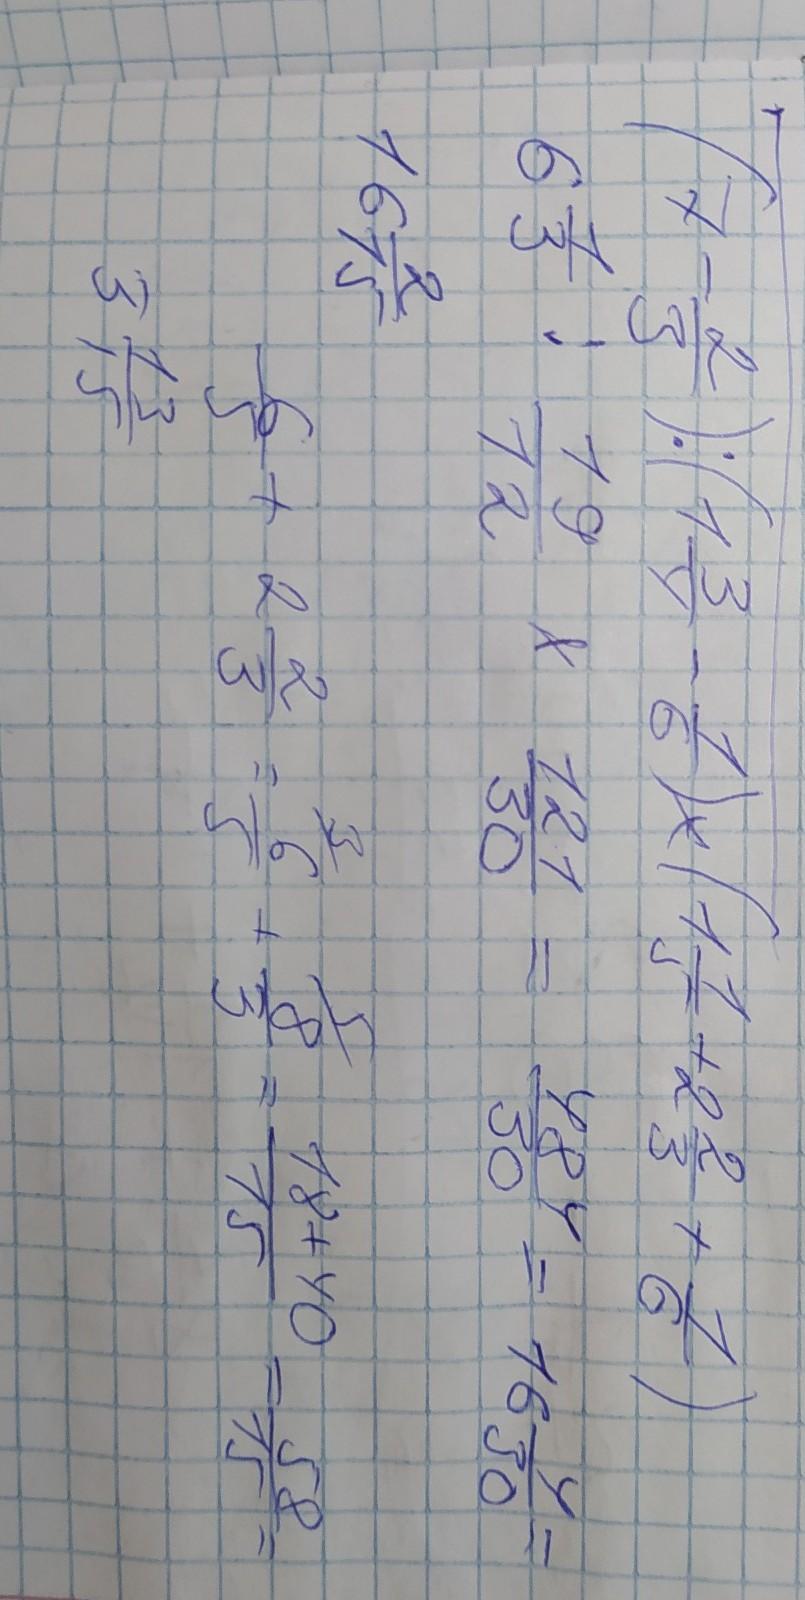 (7 - 2/3) : (1 3/4 - 1/6) x (1 1/5 + 2 2/3 + 1/6)
6 1/3 : 19/12 x 121/30 = 484/30 = 16 4/30 =
16 2/15
6/5 + 2 2/3 = 6/5 3 + 8/3 5 = 18+40/15 = 58/15 =
3 13/15